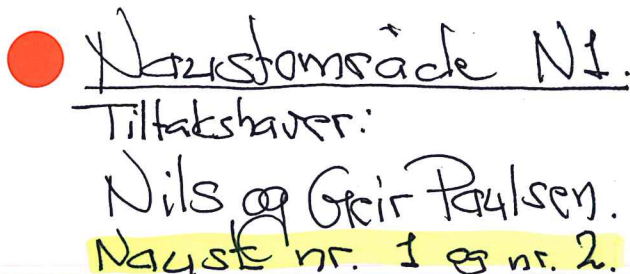 Naustområde N1.
Tiltakshaver:
Nils og Geir Paulsen.
Naust nr. 1 og nr. 2.